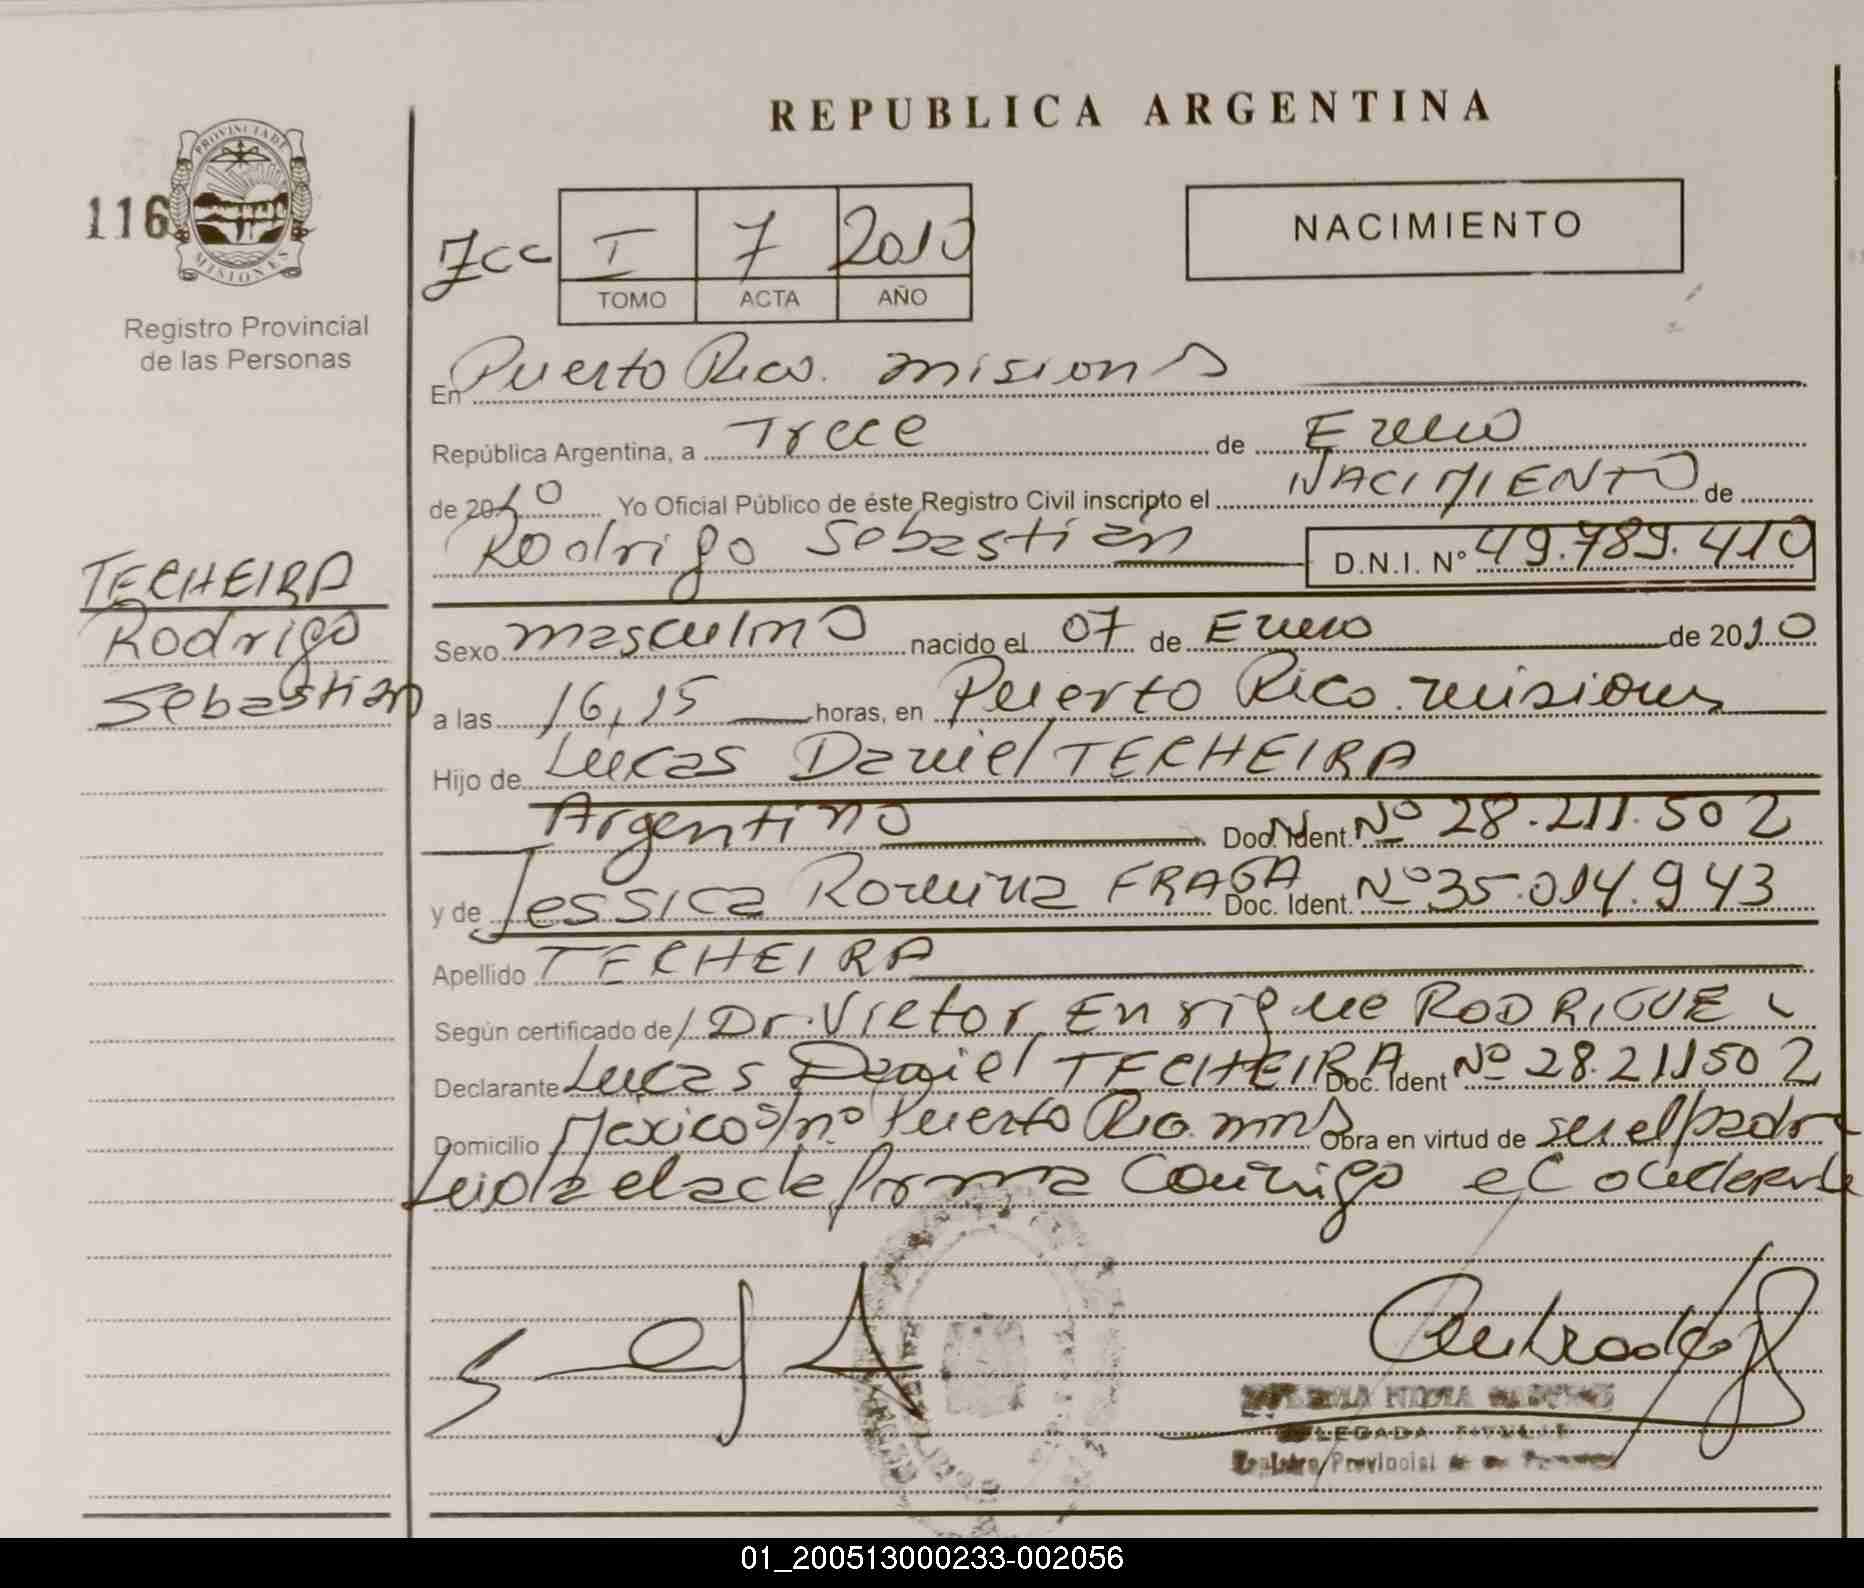 REPUBLICA ARGENTINA
116
PROVINCIA DE
MISIONES
Registro Provincial
de las Personas
NACIMIENTO
I 7 2010
TOMO ACTA AÑO
En Puerto Rico. misiones
República Argentina, a Trece de Enero
de 2010 Yo Oficial Público de éste Registro Civil inscripto el NACIMIENTO de
Rodrigo Sebastián D.N.I. Nº 49.789.410
TECHEIRA
Rodrigo
Sebastián
Sexo masculino nacido el 07 de Enero de 2010
a las 16,15 horas, en Puerto Rico. misiones
Hijo de Lucas Daniel TECHEIRA
Argentino Doc. Ident. Nº 28.211.502
y de Jessica Romina FRAGA Doc. Ident. Nº 35.014.943
Apellido TECHEIRA
Según certificado de Dr. Victor Enrique RODRIGUEZ
Declarante Lucas Daniel TECHEIRA Doc. Ident Nº 28.211502
Domicilio Mexico s/nº Puerto Rico. mns Obra en virtud de ser el padre
Leida el acta firma Conmigo el declarante
DELEGADA TITULAR
Registro Provincial de las Personas
01_200513000233-002056